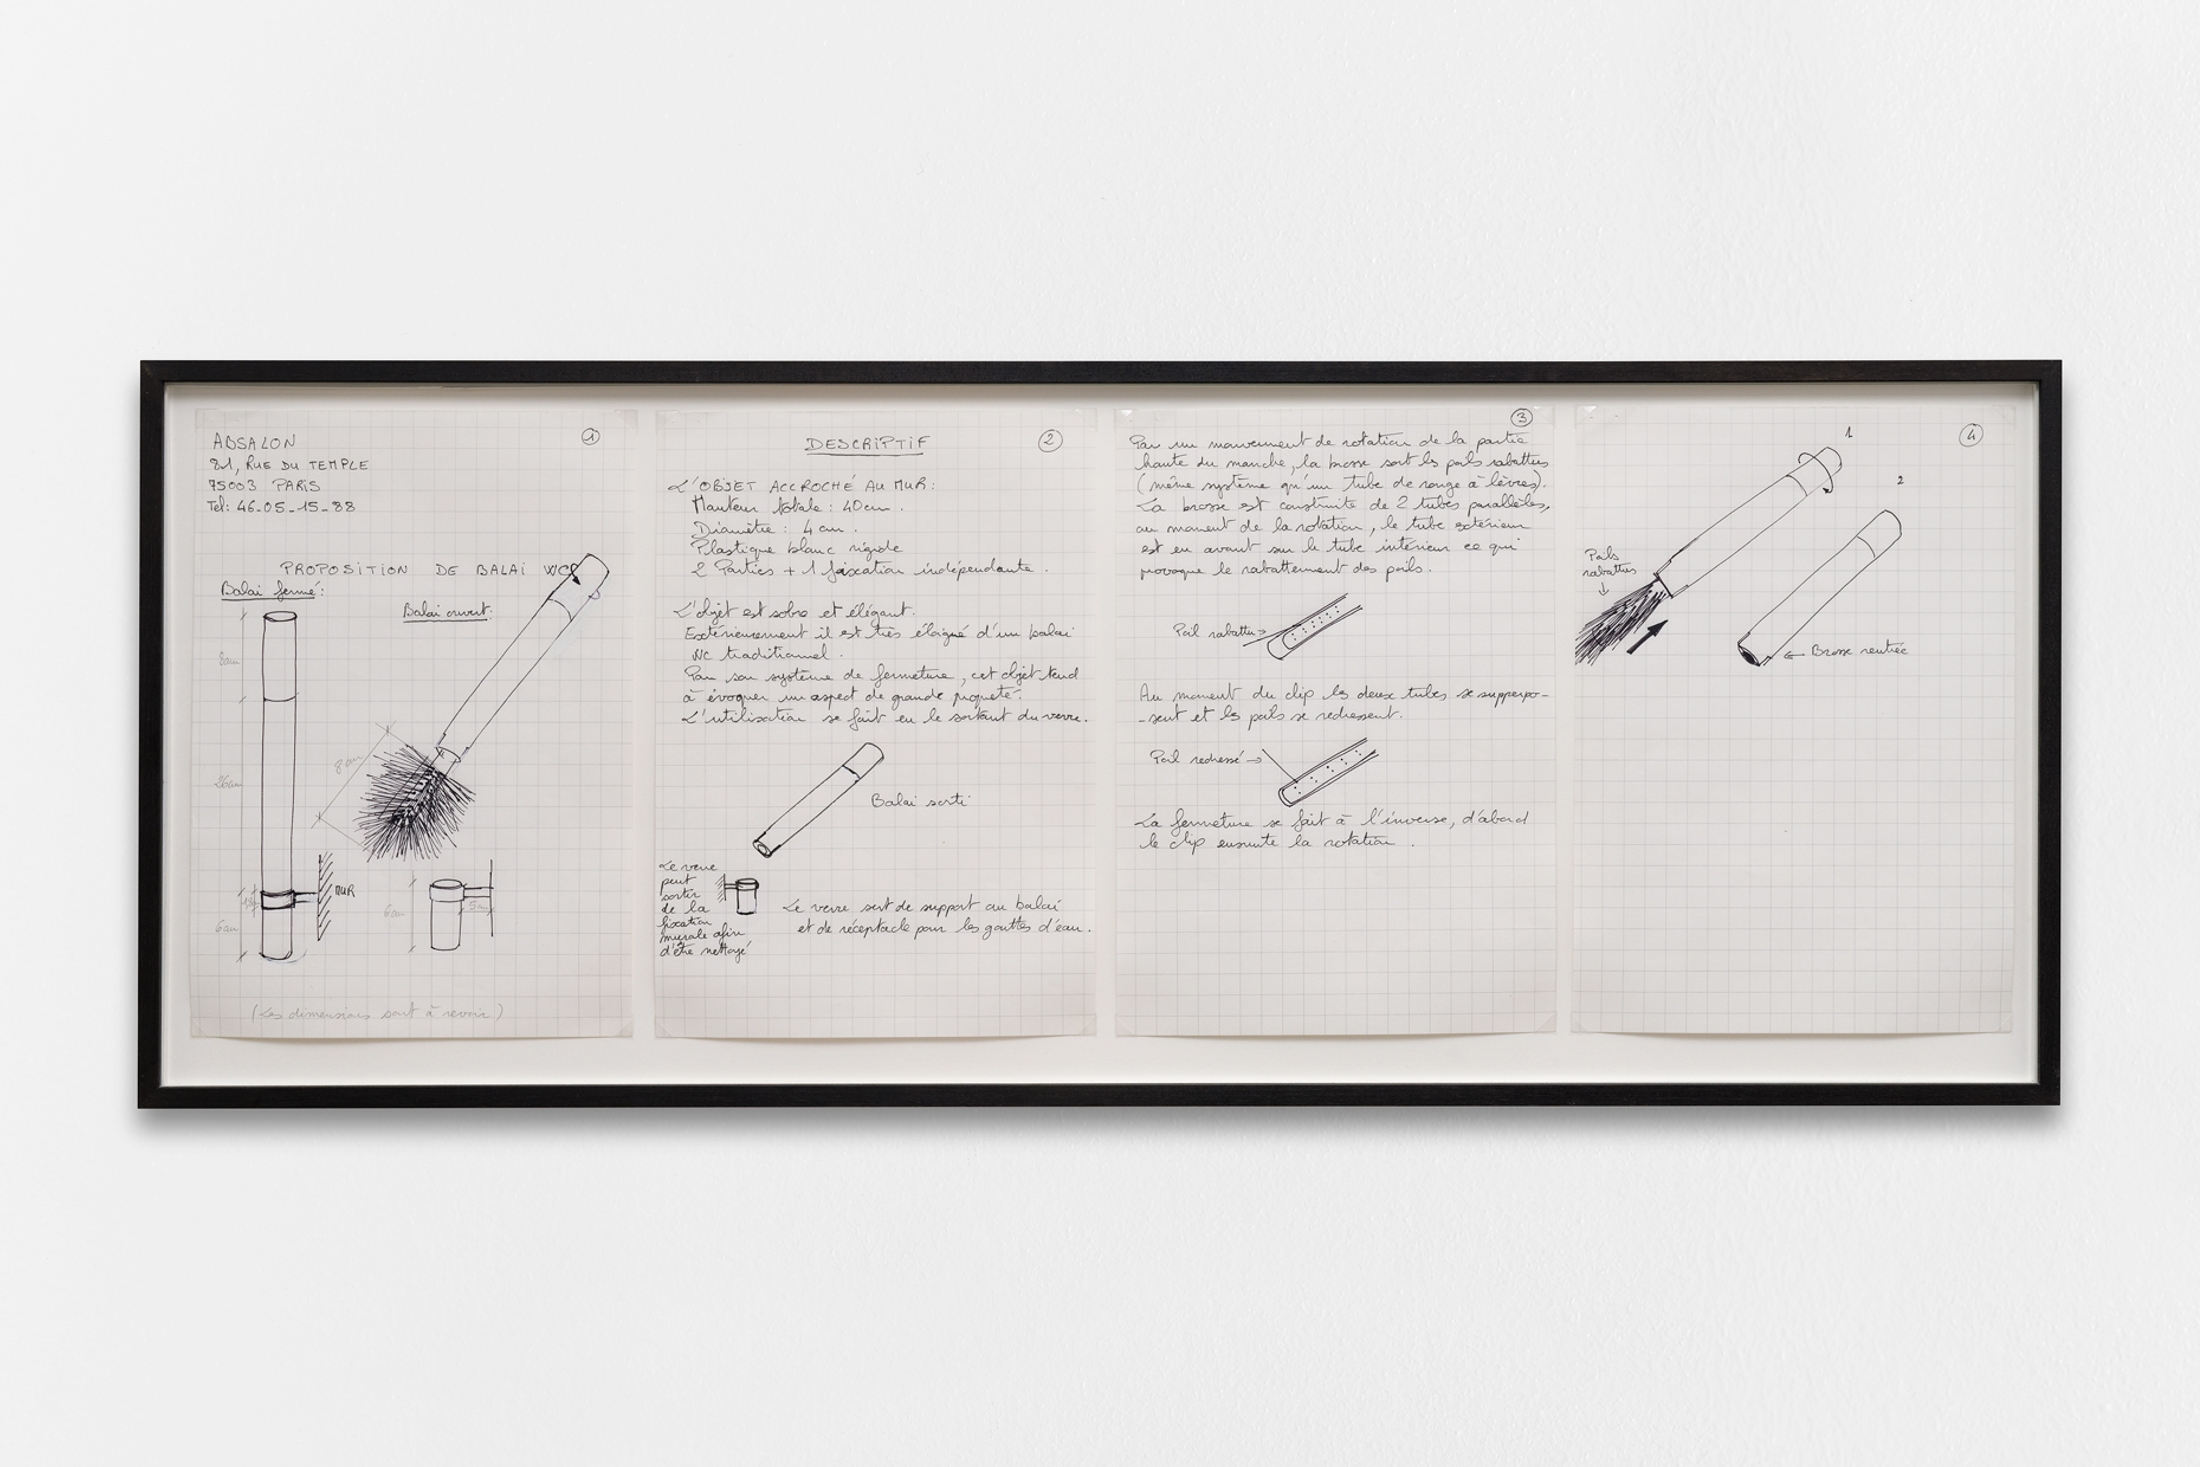 ABSALON
①
81, RUE DU TEMPLE
75003 PARIS
Tel: 46-05-15-88
PROPOSITION DE BALAI WC
Balai fermé:
Balai ouvert:
8cm
8cm
26cm
MUR
6cm
6cm
5cm
(Les dimensions sont à revoir)
DESCRIPTIF
②
L'OBJET ACCROCHÉ AU MUR:
Hauteur totale: 40cm.
Diamètre: 4cm.
Plastique blanc rigide
2 Parties + 1 fixation indépendante.
L'objet est sobre et élégant.
Extérieurement il est très éloigné d'un balai
WC traditionnel.
Par son système de fermeture, cet objet tend
à évoquer un aspect de grande propreté.
L'utilisation se fait en le sortant du verre.
Balai sorti
Le verre
peut
sortir
de la
fixation
murale afin
d'être nettoyé
Le verre sert de support au balai
et de réceptacle pour les gouttes d'eau.
③
Par un mouvement de rotation de la partie
haute du manche, la brosse sort les poils rabattus
(même système qu'un tube de rouge à lèvres).
La brosse est construite de 2 tubes parallèles,
au moment de la rotation, le tube extérieur
est en avant sur le tube intérieur ce qui
provoque le rabattement des poils.
Poil rabattu
Au moment du clip les deux tubes se supperpo-
-sent et les poils se redressent.
Poil redressé
La fermeture se fait à l'inverse, d'abord
le clip ensuite la rotation.
④
1
2
Poils
rabattus
Brosse rentrée